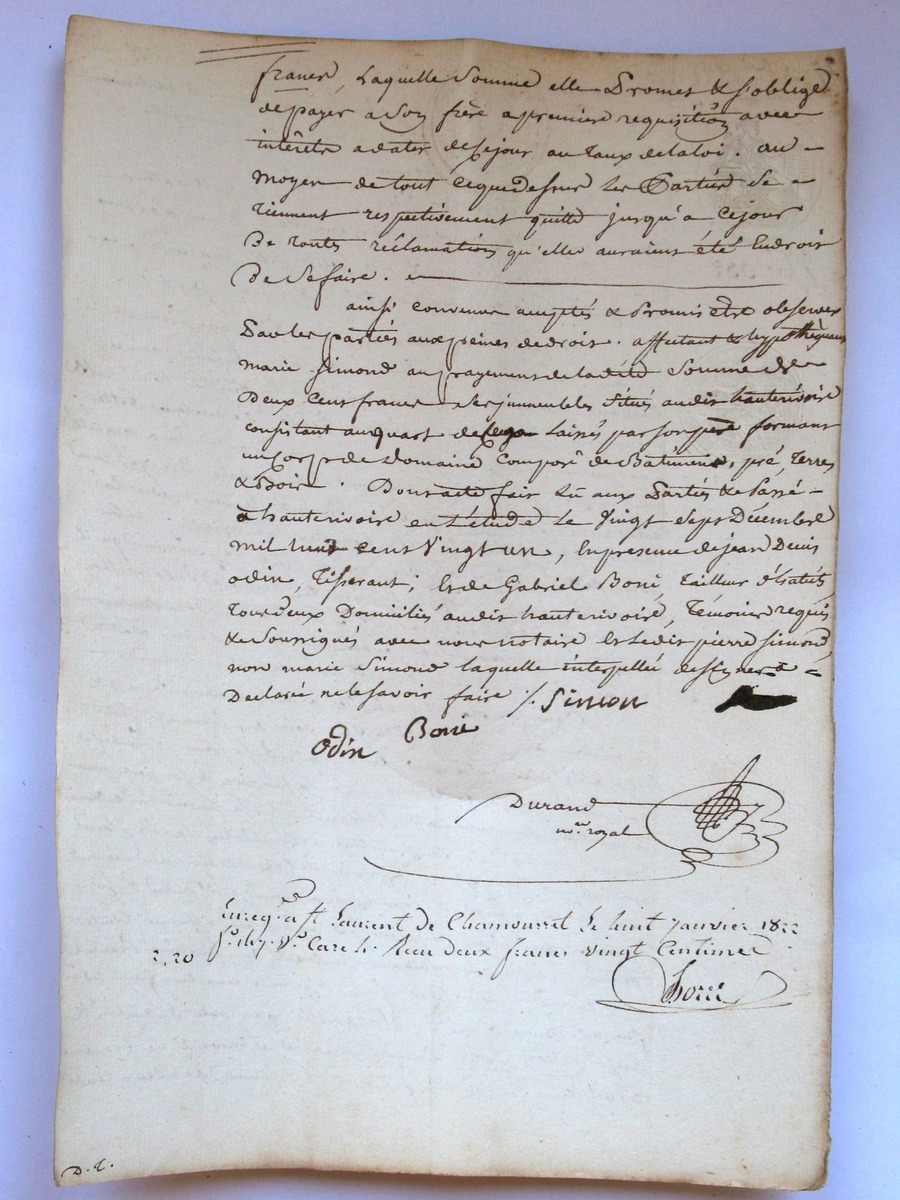 francs, laquelle somme elle promet & s'oblige
de payer a son frère a première requisition avec
intérêts a dater de ce jour au taux de la loi. au
moyen de tout ce que dessus les Parties se
tiennent respectivement quitte jusqu'à ce jour
De toutes réclamations qu'elles auraient été En droit
De se faire.
ainsi convenu acceptés & Promis être observer
Par les parties aux peines de droit. affectant & hypothèquant
marie Simond au payement de la dite Somme de
Deux Cent francs les immeubles situés audit hauterivoire
consistant au quart de laissés par son père formant
un Corps de Domaine Composé de Batiments, pré, Terres
& Bois. Dont acte fait lû aux Parties & Passé
à hauterivoire en l'étude le Vingt Sept Décembre
mil huit cent Vingt un, En présence de jean Denis
odin, Tisserant; Et de Gabriel Boni, Tailleur d'habits
Tous Deux Domiciliés audit hauterivoire, Témoins requis
& Soussignés avec nous notaire Et ledit pierre Simond,
non marie Simond laquelle interpellée de signer a
Déclaré ne le savoir faire ./. Simon
Odin Boni
Durand
nre. royal
Enregé. a St. Laurent de Chamousset le huit Janvier 1822
Deux francs vingt Centimes
2,20
D. L.